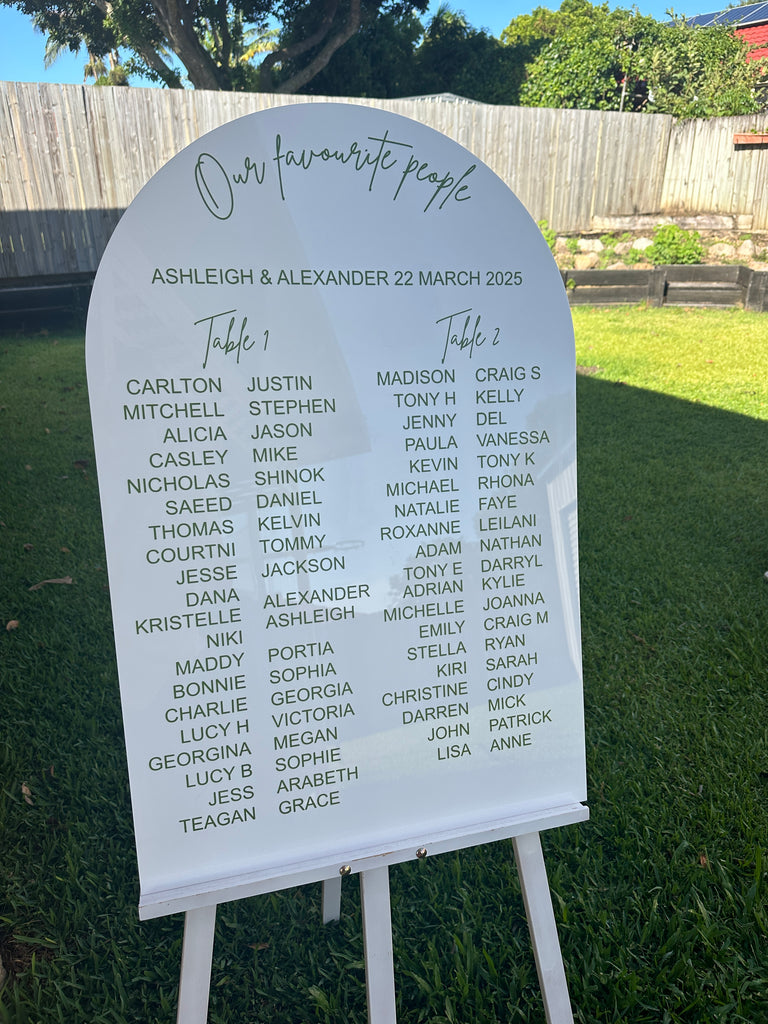 Our favourite people
ASHLEIGH & ALEXANDER 22 MARCH 2025
Table 1
CARLTON JUSTIN
MITCHELL STEPHEN
ALICIA JASON
CASLEY MIKE
NICHOLAS SHINOK
SAEED DANIEL
THOMAS KELVIN
COURTNI TOMMY
JESSE JACKSON
DANA ALEXANDER
KRISTELLE ASHLEIGH
NIKI
MADDY PORTIA
BONNIE SOPHIA
CHARLIE GEORGIA
LUCY H VICTORIA
GEORGINA MEGAN
LUCY B SOPHIE
JESS ARABETH
TEAGAN GRACE
Table 2
MADISON CRAIG S
TONY H KELLY
JENNY DEL
PAULA VANESSA
KEVIN TONY K
MICHAEL RHONA
NATALIE FAYE
ROXANNE LEILANI
ADAM NATHAN
TONY E DARRYL
ADRIAN KYLIE
MICHELLE JOANNA
EMILY CRAIG M
STELLA RYAN
KIRI SARAH
CHRISTINE CINDY
DARREN MICK
JOHN PATRICK
LISA ANNE